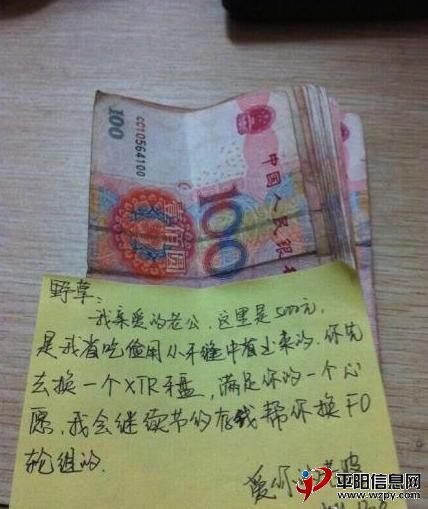 100
CC10564100
壹佰圆
100
中国人民银
野草:
我亲爱的老公,这里是5000元,
是我省吃俭用从牙缝中省出来的.你先
去换一个XTR牙盘,满足你的一个心
愿.我会继续节约存钱帮你换FO
轮组的.
爱你
平阳信息网
www.wzpy.com